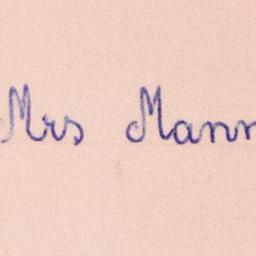 Mrs Mann